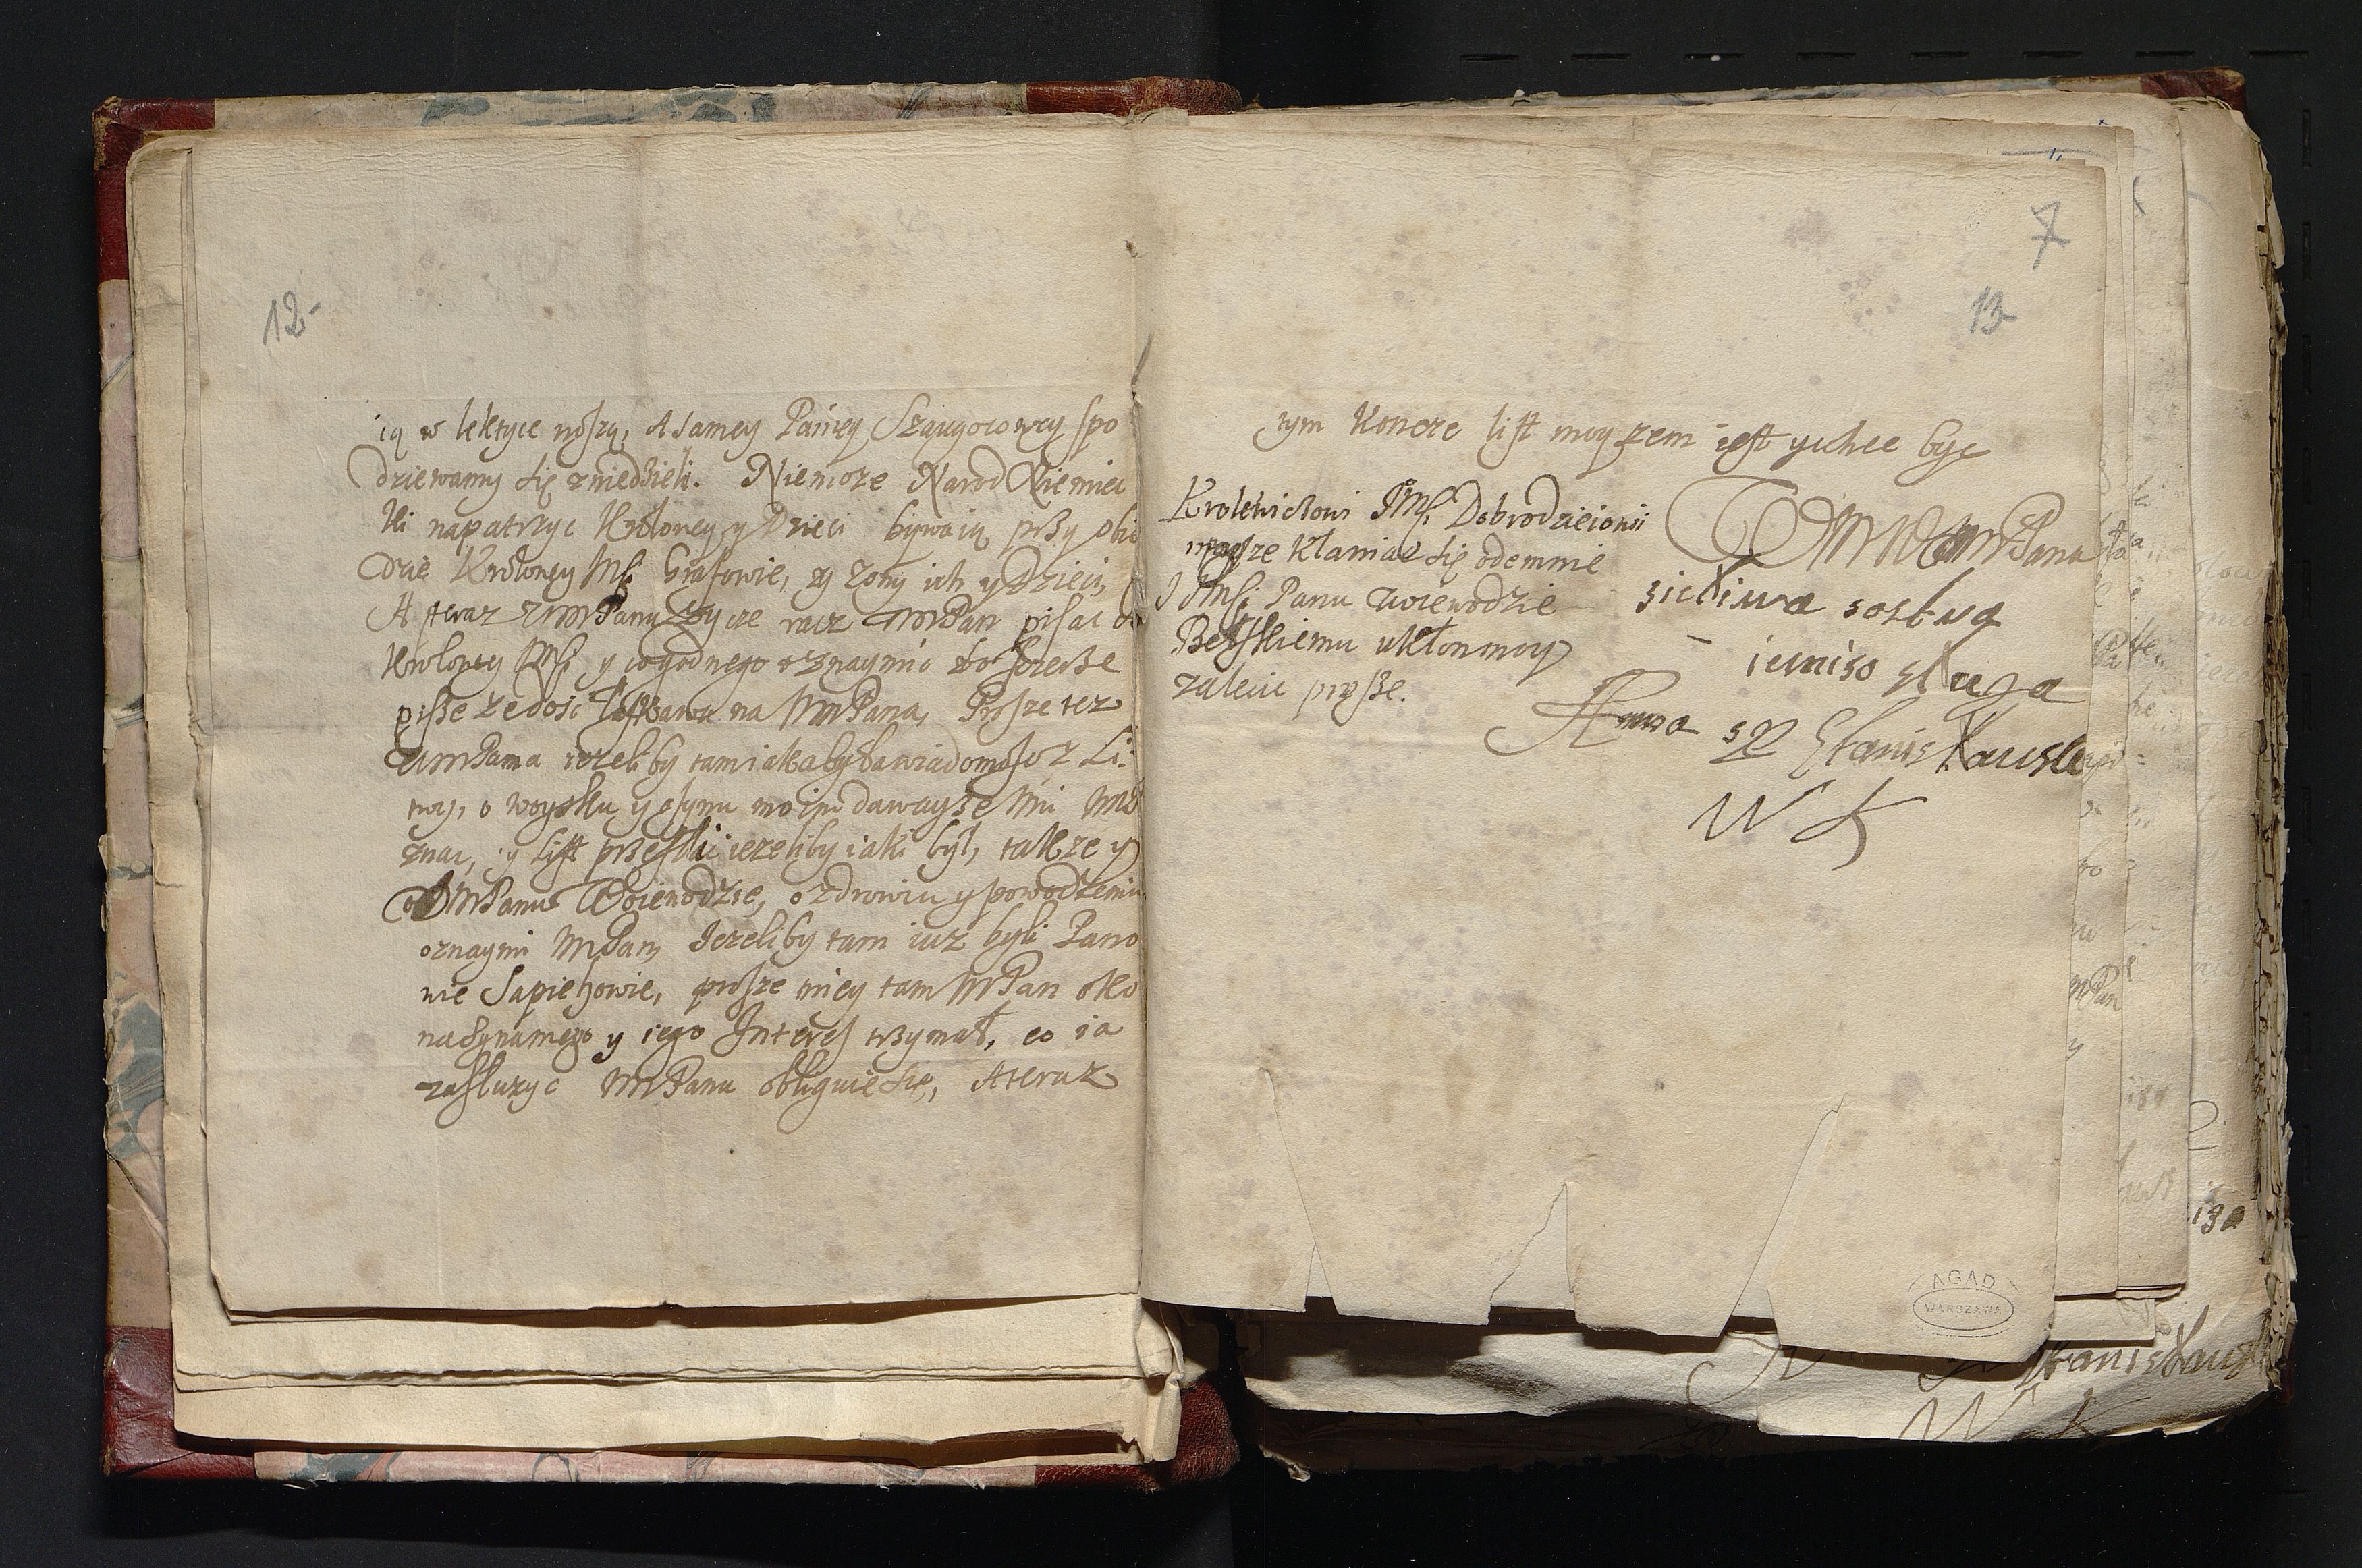 12
ią w lektyce noszą, A samey Paniey Szaugocowey spo
dziewamy się zniedzieli. Niemoze Narod Niemiec
ki napatrzyc Krolowey y Dzieci bywaią przy obie
dzie Krolowey Mści Grafowie, y zony ich y Dzieci,
A teraz zMMPanu zycze racz MMPan pisac do
Krolowey JMści y cogodnego oznaymic bo szczerze
pisze ze dość łaskawa na MMPana, Prosze tez
MMPana iezeliby tam iaka była wiadomosc z Li:
twy, o woysku y o synu moim dawayze mi MP
znac, y List przesłac iezeliby iaki był, takze y
o JMPanu Woiewodzie, o zdrowiu y powodzeniu
oznaymi MMPan, Jezeliby tam iuz byli Pano
wie Sapiehowie, prosze miey tam MMPan oko
na Syna mego y iego Interes trzymał, co ia
zasłuzyc MMPanu obliguie się, A teraz
7
13
tym koncze list moy zem iest y chce byc
Krolewicowi JMści Dobrodzieiowi
prosze kłaniac się odemnie
JMści Panu woiewodzie
Bełskiemu ukłon moy
zalecic prosze.
WMMMPana
zicliwa sostrą
i unizo sługa
Anna z P Stanisławsko
W K
AGAD
WARSZAWA